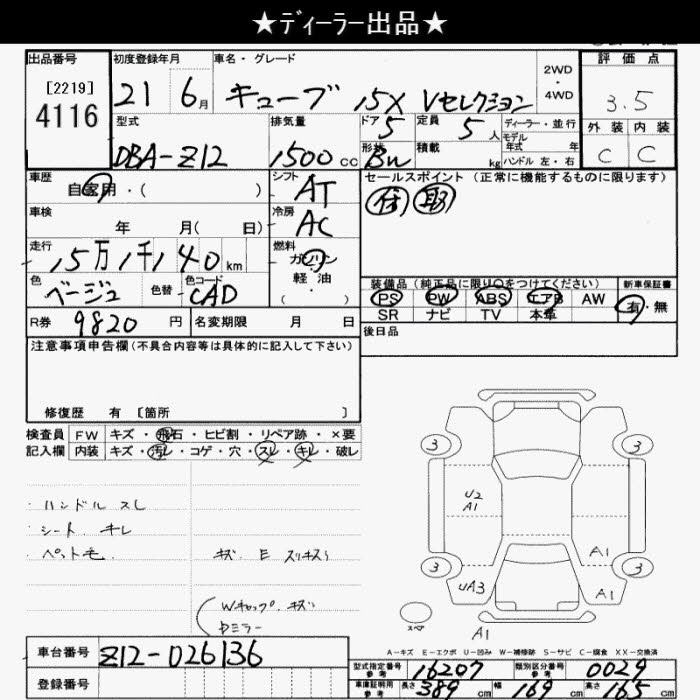 ★ディーラー出品★
出品番号
[2219]
4116
初度登録年月
21 6月
車名・グレード
キューブ 15X Vセレクション
2WD
・
4WD
評価点
3.5
外装 内装
C C
型式
DBA-Z12
排気量
1500 cc
ドア
5
形状
Bn
定員
5 人
積載
kg
ディーラー・並行
モデル
年式 年
ハンドル 左・右
車歴
自家用・( )
シフト
AT
セールスポイント (正常に機能するものに限ります)
保 取
車検
年 月( 日)
冷房
AC
走行
15万1千140km
燃料
ガソリン
軽油
( ・ )
色
ベージュ
色替
色コード
CAD
装備品 (純正品に限り○をつけてください)
PS PW ABS エアB AW
SR ナビ TV 本革
新車保証書
有・無
R券 9820 円
名変期限 月 日
後日品
注意事項申告欄 (不具合内容等は具体的に記入して下さい)
修復歴 有 〔箇所 〕
検査員
記入欄
FW キズ・飛石・ヒビ割・リペア跡・×要
内装 キズ・汚レ・コゲ・穴・スレ・キレ・破レ
・ハンドル スレ
・シート キレ
・ペット毛
キズ E スリキズ
Wキャップ キズ
Dミラー
3 3
U2
A1
A1
3 3
UA3
A1
スペア
A1
A-キズ E-エクボ U-凹み W-補修跡 S-サビ C-腐食 XX-交換済
車台番号 Z12-026136
登録番号
型式指定番号
参考
16207
類別区分番号
参考
0029
車庫証明用
参考
長さ 389 cm 幅 169 cm 高さ 165 cm